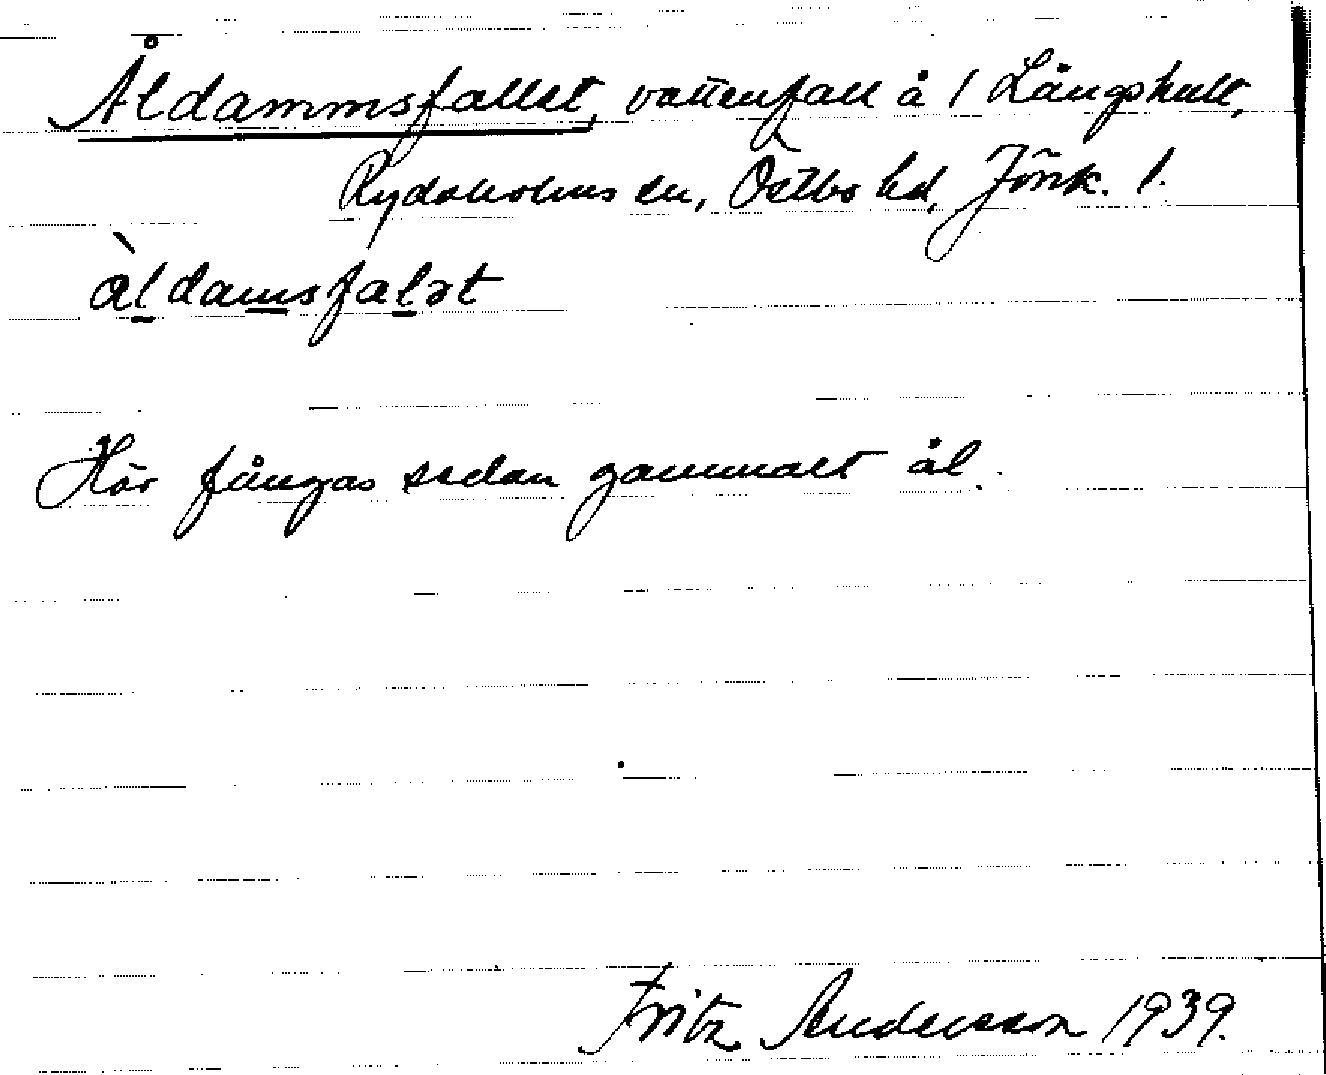 Åldammsfallet, vattenfall å 1 Långshult,
Rydaholms sn, Östbo hd, Jönk. l.
àldamsfalət
Här fångas sedan gammalt ål.
Fritz Andersson 1939.